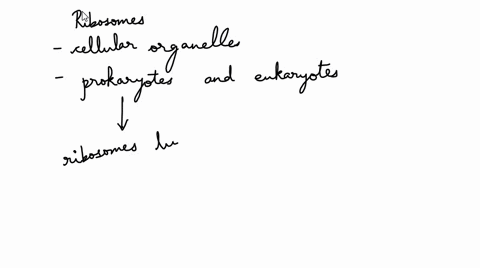 Ribosomes
- cellular organelles
- prokaryotes and eukaryotes
↓
ribosomes